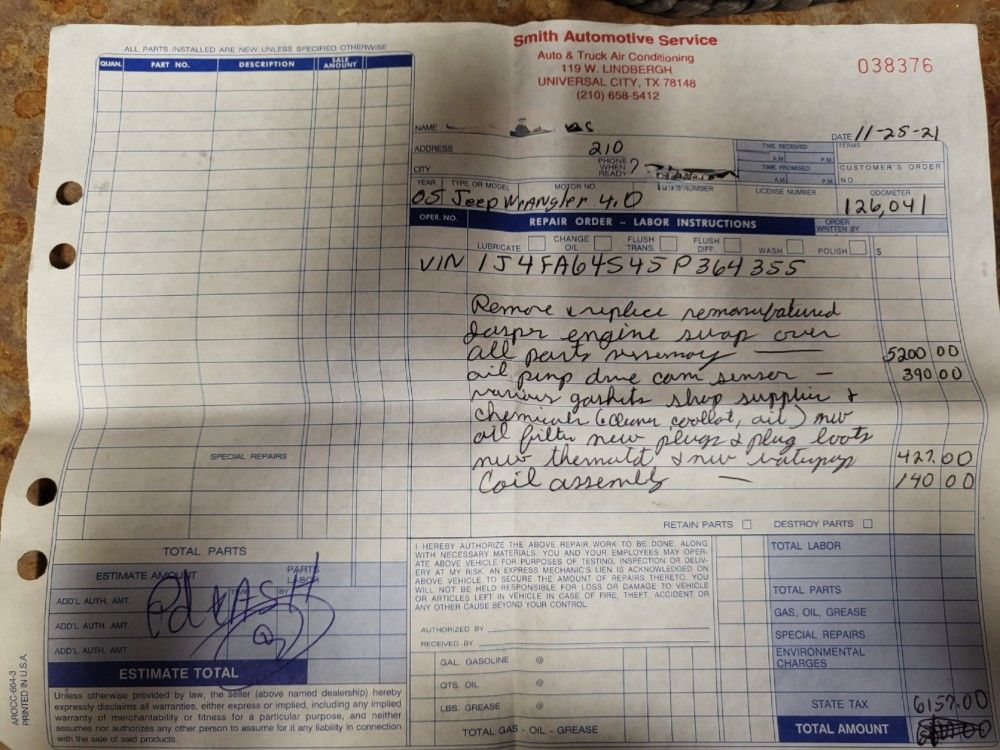 ALL PARTS INSTALLED ARE NEW UNLESS SPECIFIED OTHERWISE
QUAN. PART NO. DESCRIPTION SALE AMOUNT
Smith Automotive Service
Auto & Truck Air Conditioning
119 W. LINDBERGH
UNIVERSAL CITY, TX 78148
(210) 658-5412
038376
NAME
DATE 11-25-21
ADDRESS 210
TIME RECEIVED A.M. P.M.
TERMS
CITY
PHONE WHEN READY?
TIME PROMISED A.M. P.M.
CUSTOMER'S ORDER NO.
YEAR TYPE OR MODEL MOTOR NO. NUMBER LICENSE NUMBER ODOMETER
05 Jeep Wrangler 4.0 126,041
OPER. NO. REPAIR ORDER - LABOR INSTRUCTIONS ORDER WRITTEN BY
LUBRICATE CHANGE OIL FLUSH TRANS. FLUSH DIFF WASH POLISH $
VIN 1J4FA64S45P364355
Remove & replace remanufatured
Jasper engine swap over
all parts nessemary 5200 00
oil pump drive cam sensor - 390 00
various gaskets shop supplies &
chemicals (cleaner coollat, oil) new
oil filter new plugs & plug boots
new thermstd & new waterpup 427.00
Coil assembly - 140 00
SPECIAL REPAIRS
RETAIN PARTS DESTROY PARTS
TOTAL PARTS
ESTIMATE AMOUNT PARTS LABOR
ADD'L AUTH. AMT. BY
ADD'L AUTH. AMT.
ADD'L AUTH. AMT.
Pd CASH
ESTIMATE TOTAL
Unless otherwise provided by law, the seller (above named dealership) hereby
expressly disclaims all warranties, either express or implied, including any implied
warranty of merchantability or fitness for a particular purpose, and neither
assumes nor authorizes any other person to assume for it any liability in connection
with the sale of said products.
AROCC-664-3
PRINTED IN U.S.A.
I HEREBY AUTHORIZE THE ABOVE REPAIR WORK TO BE DONE, ALONG
WITH NECESSARY MATERIALS. YOU AND YOUR EMPLOYEES MAY OPER-
ATE ABOVE VEHICLE FOR PURPOSES OF TESTING, INSPECTION OR DELIV-
ERY AT MY RISK. AN EXPRESS MECHANIC'S LIEN IS ACKNOWLEDGED ON
ABOVE VEHICLE TO SECURE THE AMOUNT OF REPAIRS THERETO. YOU
WILL NOT BE HELD RESPONSIBLE FOR LOSS OR DAMAGE TO VEHICLE
OR ARTICLES LEFT IN VEHICLE IN CASE OF FIRE, THEFT, ACCIDENT OR
ANY OTHER CAUSE BEYOND YOUR CONTROL.
AUTHORIZED BY
RECEIVED BY
GAL. GASOLINE @
QTS. OIL @
LBS. GREASE @
TOTAL GAS - OIL - GREASE
TOTAL LABOR
TOTAL PARTS
GAS, OIL, GREASE
SPECIAL REPAIRS
ENVIRONMENTAL CHARGES
STATE TAX 6157.00
TOTAL AMOUNT